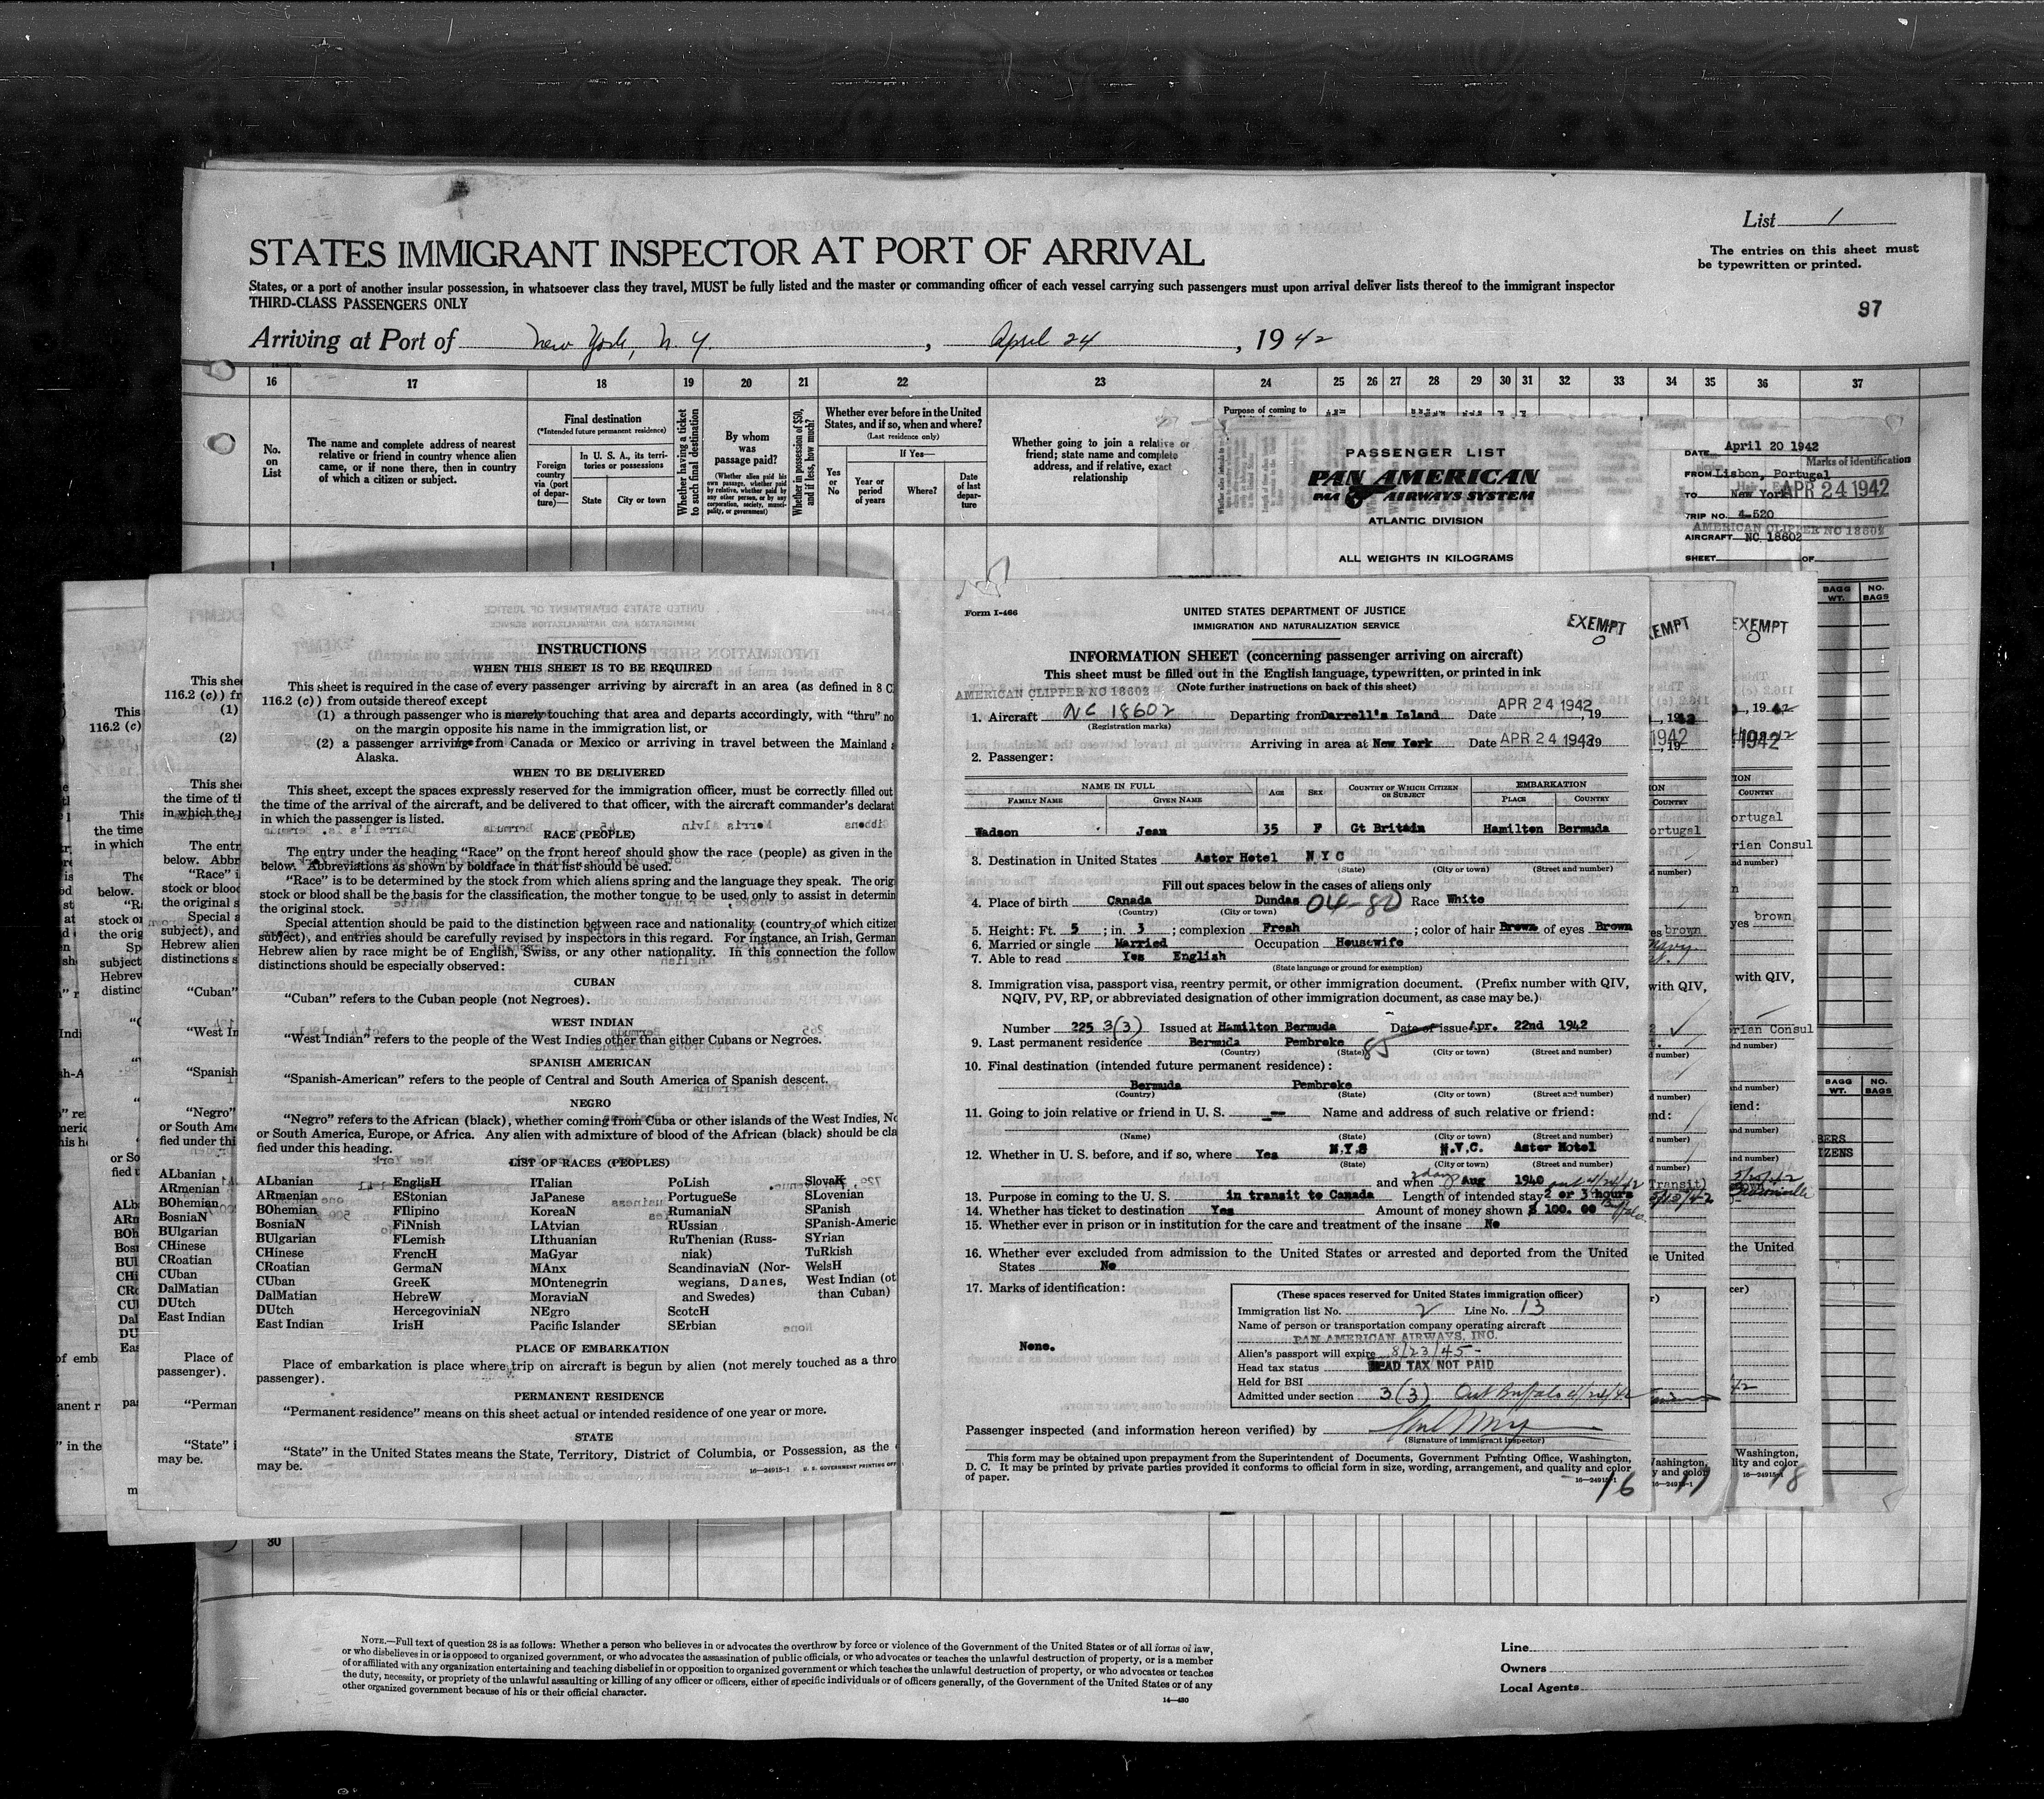 List 1
The entries on this sheet must
be typewritten or printed.
97
STATES IMMIGRANT INSPECTOR AT PORT OF ARRIVAL
States, or a port of another insular possession, in whatsoever class they travel, MUST be fully listed and the master or commanding officer of each vessel carrying such passengers must upon arrival deliver lists thereof to the immigrant inspector
THIRD-CLASS PASSENGERS ONLY
Arriving at Port of New York, N. Y. , April 24 , 19 42
16 17 18 19 20 21 22 23 24 25 26 27 28 29 30 31 32 33 34 35 36 37
No.
on
List
The name and complete address of nearest
relative or friend in country whence alien
came, or if none there, then in country
of which a citizen or subject.
Final destination
(*Intended future permanent residence)
Foreign
country
via (port
of depar-
ture)—
In U. S. A., its terri-
tories or possessions
State City or town
Whether having a ticket
to such final destination
By whom
was
passage paid?
(Whether alien paid his
own passage, whether paid
by relative, whether paid by
any other person, or by any
corporation, society, munici-
pality, or government)
Whether in possession of $50,
and if less, how much?
Whether ever before in the United
States, and if so, when and where?
(Last residence only)
Yes
or
No
If Yes—
Year or
period
of years
Where?
Date
of last
depar-
ture
Whether going to join a relative or
friend; state name and complete
address, and if relative, exact
relationship
Purpose of coming to
PASSENGER LIST
PAN AMERICAN
PAA AIRWAYS SYSTEM
ATLANTIC DIVISION
ALL WEIGHTS IN KILOGRAMS
DATE April 20 1942
Marks of identification
FROM Lisbon, Portugal
TO New York APR 24 1942
TRIP NO. 4-520
AMERICAN CLIPPER NC 18602
AIRCRAFT NC 18602
SHEET OF
BAGG
WT.
NO.
BAGS
INSTRUCTIONS
WHEN THIS SHEET IS TO BE REQUIRED
This sheet is required in the case of every passenger arriving by aircraft in an area (as defined in 8 C
116.2 (c)) from outside thereof except
(1) a through passenger who is merely touching that area and departs accordingly, with "thru" no
on the margin opposite his name in the immigration list, or
(2) a passenger arriving from Canada or Mexico or arriving in travel between the Mainland a
Alaska.
WHEN TO BE DELIVERED
This sheet, except the spaces expressly reserved for the immigration officer, must be correctly filled out
the time of the arrival of the aircraft, and be delivered to that officer, with the aircraft commander's declarat
in which the passenger is listed.
RACE (PEOPLE)
The entry under the heading "Race" on the front hereof should show the race (people) as given in the
below. Abbreviations as shown by boldface in that list should be used.
"Race" is to be determined by the stock from which aliens spring and the language they speak. The orig
stock or blood shall be the basis for the classification, the mother tongue to be used only to assist in determin
the original stock.
Special attention should be paid to the distinction between race and nationality (country of which citizen
subject), and entries should be carefully revised by inspectors in this regard. For instance, an Irish, German
Hebrew alien by race might be of English, Swiss, or any other nationality. In this connection the follow
distinctions should be especially observed:
CUBAN
"Cuban" refers to the Cuban people (not Negroes).
WEST INDIAN
"West Indian" refers to the people of the West Indies other than either Cubans or Negroes.
SPANISH AMERICAN
"Spanish-American" refers to the people of Central and South America of Spanish descent.
NEGRO
"Negro" refers to the African (black), whether coming from Cuba or other islands of the West Indies, No
or South America, Europe, or Africa. Any alien with admixture of blood of the African (black) should be cla
fied under this heading.
LIST OF RACES (PEOPLES)
ALbanian EnglisH ITalian PoLish SlovaK
ARmenian EStonian JaPanese PortugueSe SLovenian
BOhemian FIlipino KoreaN RumaniaN SPanish
BosniaN FiNnish LAtvian RUssian SPanish-Americ
BUlgarian FLemish LIthuanian RuThenian (Russ- SYrian
CHinese FrencH MaGyar niak) TuRkish
CRoatian GermaN MAnx ScandinaviaN (Nor- WelsH
CUban GreeK MOntenegrin wegians, Danes, West Indian (ot
DalMatian HebreW MoraviaN and Swedes) than Cuban)
DUtch HercegoviniaN NEgro ScotcH
East Indian IrisH Pacific Islander SErbian
PLACE OF EMBARKATION
Place of embarkation is place where trip on aircraft is begun by alien (not merely touched as a thro
passenger).
PERMANENT RESIDENCE
"Permanent residence" means on this sheet actual or intended residence of one year or more.
STATE
"State" in the United States means the State, Territory, District of Columbia, or Possession, as the
may be.
16—24915-1 U. S. GOVERNMENT PRINTING OFF
Form I-466
UNITED STATES DEPARTMENT OF JUSTICE
IMMIGRATION AND NATURALIZATION SERVICE
EXEMPT
INFORMATION SHEET (concerning passenger arriving on aircraft)
This sheet must be filled out in the English language, typewritten, or printed in ink
(Note further instructions on back of this sheet)
AMERICAN CLIPPER NC 18602
1. Aircraft NC 18602 Departing from Darrell's Island Date APR 24 1942, 19
(Registration marks)
Arriving in area at New York Date APR 24 1942 19
2. Passenger:
NAME IN FULL AGE SEX COUNTRY OF WHICH CITIZEN OR SUBJECT EMBARKATION
FAMILY NAME GIVEN NAME PLACE COUNTRY
Wadson Jean 35 F Gt Britain Hamilton Bermuda
3. Destination in United States Astor Hotel N Y C
(State) (City or town) (Street and number)
Fill out spaces below in the cases of aliens only
4. Place of birth Canada Dundas 04-80 Race White
(Country) (City or town)
5. Height: Ft. 5 ; in. 3 ; complexion Fresh ; color of hair Brown of eyes Brown
6. Married or single Married Occupation Housewife
7. Able to read Yes English
(State language or ground for exemption)
8. Immigration visa, passport visa, reentry permit, or other immigration document. (Prefix number with QIV,
NQIV, PV, RP, or abbreviated designation of other immigration document, as case may be.)
Number 225 3(3) Issued at Hamilton Bermuda Date of issue Apr. 22nd 1942
9. Last permanent residence Bermuda Pembroke 85
(Country) (State) (City or town) (Street and number)
10. Final destination (intended future permanent residence):
Bermuda Pembroke
(Country) (State) (City or town) (Street and number)
11. Going to join relative or friend in U. S. -- Name and address of such relative or friend:
(Name) (State) (City or town) (Street and number)
12. Whether in U. S. before, and if so, where Yes N.Y.S N.Y.C. Astor Hotel
(State) (City or town) (Street and number)
and when Aug 1940
13. Purpose in coming to the U. S. in transit to Canada Length of intended stay 2 or 3 hours
14. Whether has ticket to destination Yes Amount of money shown $ 100. 00
15. Whether ever in prison or in institution for the care and treatment of the insane No
16. Whether ever excluded from admission to the United States or arrested and deported from the United
States No
17. Marks of identification:
None.
(These spaces reserved for United States immigration officer)
Immigration list No. 2 Line No. 13
Name of person or transportation company operating aircraft
PAN AMERICAN AIRWAYS, INC.
Alien's passport will expire 8/23/45
Head tax status HEAD TAX NOT PAID
Held for BSI
Admitted under section 3(3) Out Buffalo 4/24/42
Passenger inspected (and information hereon verified) by
(Signature of immigrant inspector)
This form may be obtained upon prepayment from the Superintendent of Documents, Government Printing Office, Washington,
D. C. It may be printed by private parties provided it conforms to official form in size, wording, arrangement, and quality and color
of paper.
16—24915-1
16
17
18
30
NOTE.—Full text of question 28 is as follows: Whether a person who believes in or advocates the overthrow by force or violence of the Government of the United States or of all forms of law,
or who disbelieves in or is opposed to organized government, or who advocates the assassination of public officials, or who advocates or teaches the unlawful destruction of property, or is a member
of or affiliated with any organization entertaining and teaching disbelief in or opposition to organized government or which teaches the unlawful destruction of property, or who advocates or teaches
the duty, necessity, or propriety of the unlawful assaulting or killing of any officer or officers, either of specific individuals or of officers generally, of the Government of the United States or of any
other organized government because of his or their official character.
14—430
Line
Owners
Local Agents